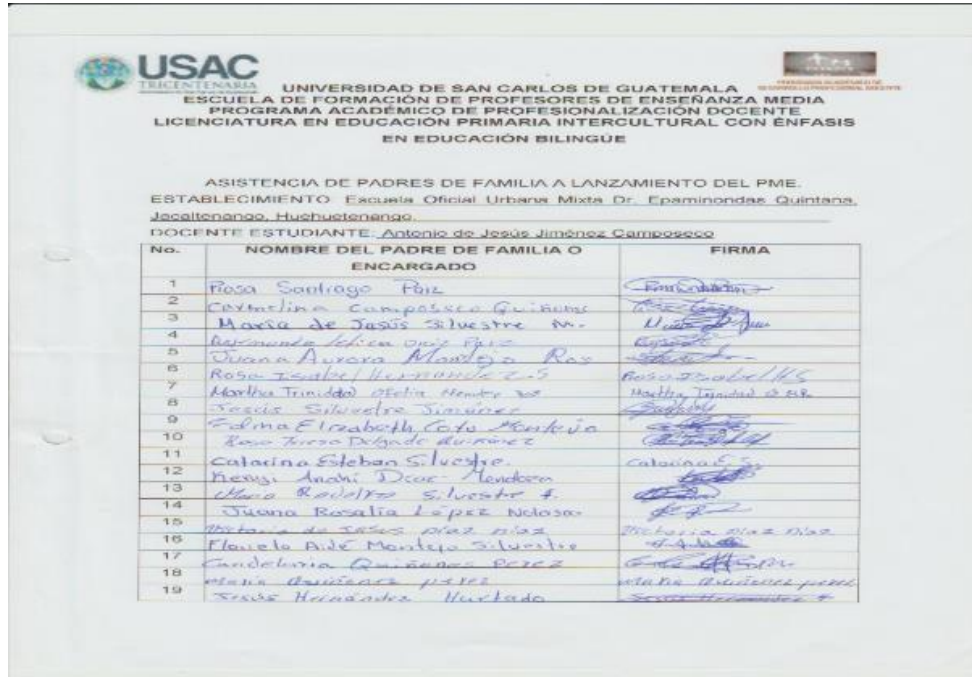 USAC
TRICENTENARIA
UNIVERSIDAD DE SAN CARLOS DE GUATEMALA
ESCUELA DE FORMACIÓN DE PROFESORES DE ENSEÑANZA MEDIA
PROGRAMA ACADÉMICO DE PROFESIONALIZACIÓN DOCENTE
LICENCIATURA EN EDUCACIÓN PRIMARIA INTERCULTURAL CON ÉNFASIS
EN EDUCACIÓN BILINGÜE
ASISTENCIA DE PADRES DE FAMILIA A LANZAMIENTO DEL PME.
ESTABLECIMIENTO Escuela Oficial Urbana Mixta Dr. Epaminondas Quintana,
Jacaltenango, Huehuetenango.
DOCENTE ESTUDIANTE: Antonio de Jesús Jiménez Camposeco
No. NOMBRE DEL PADRE DE FAMILIA O ENCARGADO FIRMA
1 Rosa Santiago Paiz
2 Carmelina Camposeco Quiñones
3 María de Jesús Silvestre M.
4
5 Juana Aurora Montejo Ros
6 Rosa Isabel Hernández S Rosa Isabel H S
7 Martha Trinidad Ofelia Martha Trinidad
8 Jesús Silvestre Jiménez
9 Edma Elizabeth Cota Montejo
10 Rosa Teresa Delgado Quiñónez
11 Catarina Esteban Silvestre. Catarina E. S.
12 Díaz Mendoza
13 Silvestre
14 Juana Rosalía López
15 Victoria de Jesús Díaz Díaz Victoria Díaz Díaz
16 Aidé Montejo Silvestre
17 Candelaria Quiñones Pérez
18 María Quiñónez pérez María Quiñónez pérez
19 Jesús Hernández Hurtado Jesús Hernández H